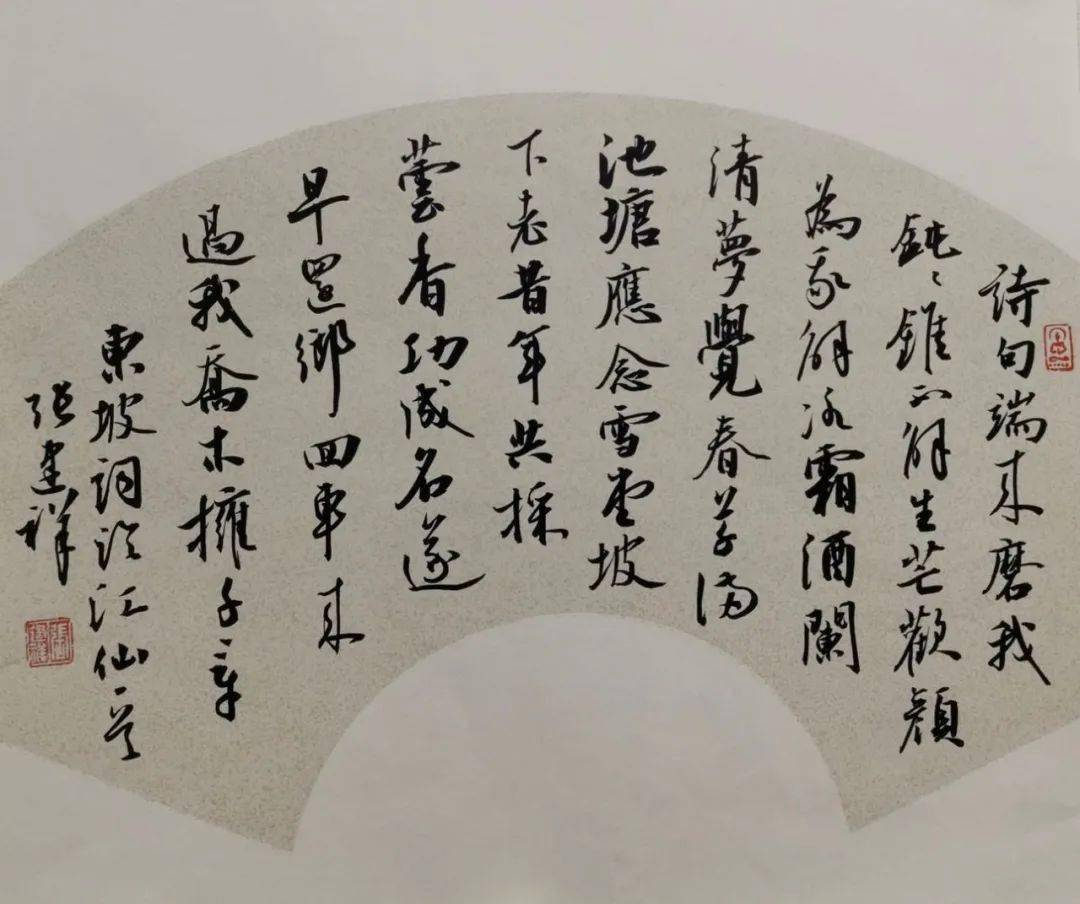 詩句端來磨我
鈍々錐不解生芒歡顏
為我解冰霜酒闌
清夢覺春草滿
池塘應念雪堂坡
下老昔年共採
蕓香功成名遂
早還鄉回車來
過我喬木擁千章
東坡詞臨江仙一首
張建祥